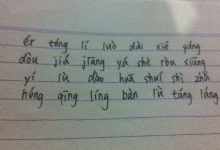 ér tóng lí luò dài xié yáng
dòu jiá jiāng yá shè ròu xiāng
yí lù dào huā shuí shì zhǔ
hóng qīng líng bàn lǜ táng láng